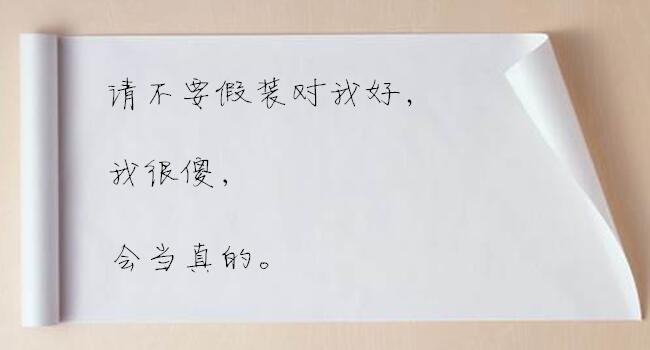 请不要假装对我好，
我很傻，
会当真的。